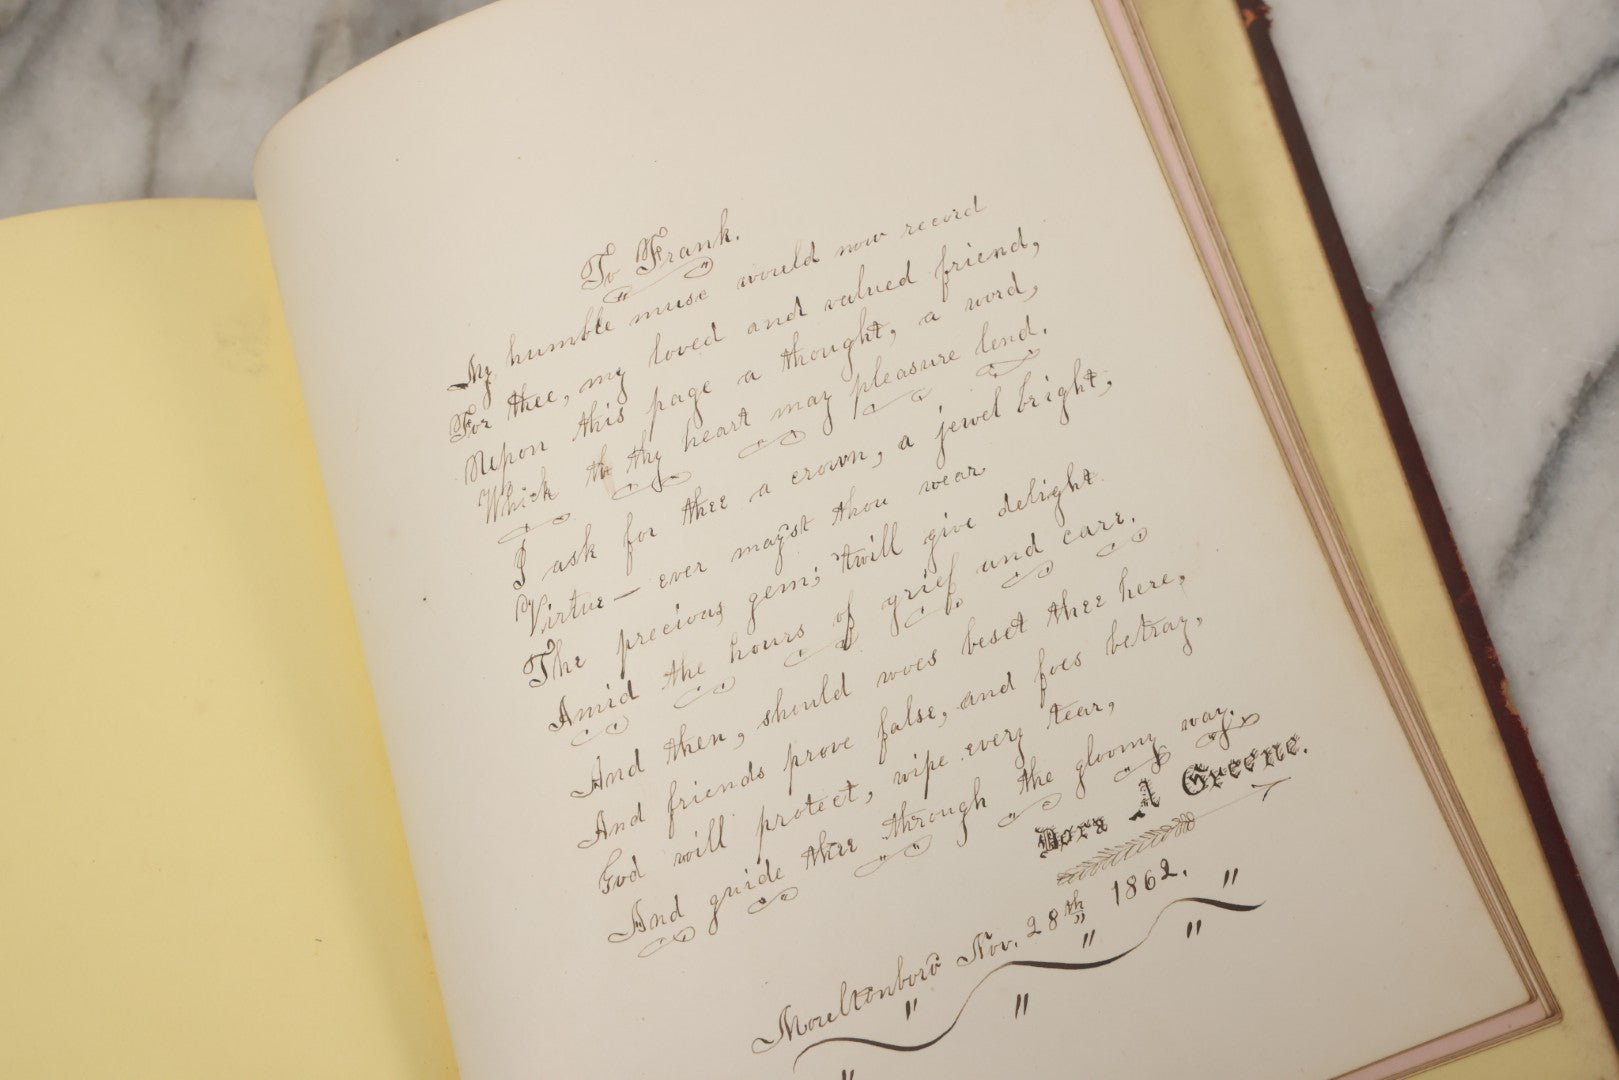 To Frank.
My humble muse would now record
For thee, my loved and valued friend,
Upon this page a thought, a word,
Which to thy heart may pleasure lend.
I ask for thee a crown, a jewel bright,
Virtue — ever mayst thou wear
The precious gem; 'twill give delight
Amid the hours of grief and care.
And then, should woes beset thee here,
And friends prove false, and foes betray,
God will protect, wipe every tear,
And guide thee through the gloomy way.
Dora A Greene.
Moultonboro Nov. 28th 1862.